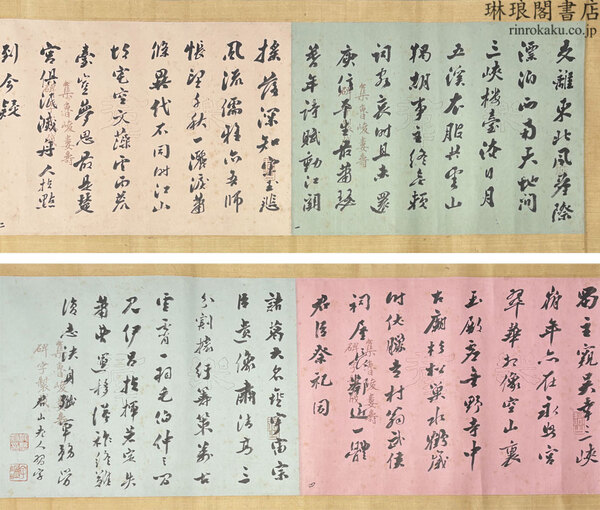 琳琅閣書店
rinrokaku.co.jp
支離東北風塵際
漂泊西南天地間
三峽樓臺淹日月
五溪衣服共雲山
羯胡事主終無賴
詞客哀時且未還
庾信平生最蕭瑟
暮年詩賦動江關
集魯峻婁壽
一
搖落深知宋玉悲
風流儒雅亦吾師
悵望千秋一灑淚蕭
條異代不同時江山
故宅空文藻雲雨荒
臺豈夢思最是楚
宮俱泯滅舟人指點
到今疑
集魯峻婁壽
二
蜀主窺吳幸三峽
崩年亦在永安宮
翠華想像空山裏
玉殿虛無野寺中
古廟杉松巢水鶴歲
時伏臘走村翁武侯
祠屋常鄰近一體
君臣祭祀同
集魯峻婁壽
四
諸葛大名垂宇宙宗
臣遺像肅清高三
分割據紆籌策萬古
雲霄一羽毛伯仲之間
見伊呂指揮若定失
蕭曹運移漢祚終難
復志決身殲軍務勞
集魯峻婁壽
碑字製
山老人習字